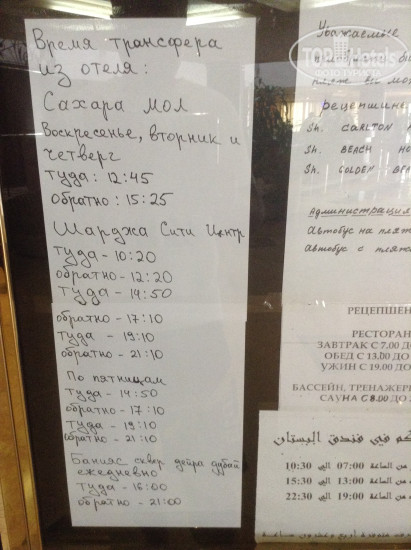 Время трансфера
из отеля:
Сахара мол
Воскресенье, вторник и
четверг
туда: 12:45
обратно: 15:25
Шарджа Сити Центр
туда - 10:20
обратно - 12:20
туда - 14:50
обратно - 17:10
туда - 19:10
обратно - 21:10
По пятницам
туда - 14:50
обратно - 17:10
туда - 19:10
обратно - 21:10
Банияс сквер дейра дубай
ежедневно
туда - 16:00
обратно - 21:00
Уважаемые
TOP Hotels
рецепшине
Sh. CARLTON
Sh. BEACH HO
Sh. GOLDEN BEA
Администрация
Автобус на пляж
Автобус с пляж
РЕЦЕПШЕН
РЕСТОРАН
ЗАВТРАК С 7.00 ДО
ОБЕД С 13.00 ДО
УЖИН С 19.00 ДО
БАССЕЙН, ТРЕНАЖЕР
САУНА С 8.00 ДО
كم في فندق البستان
من الساعة 07:00 الى 10:30
من الساعة 13:00 الى 15:30
من الساعة 19:00 الى 22:30